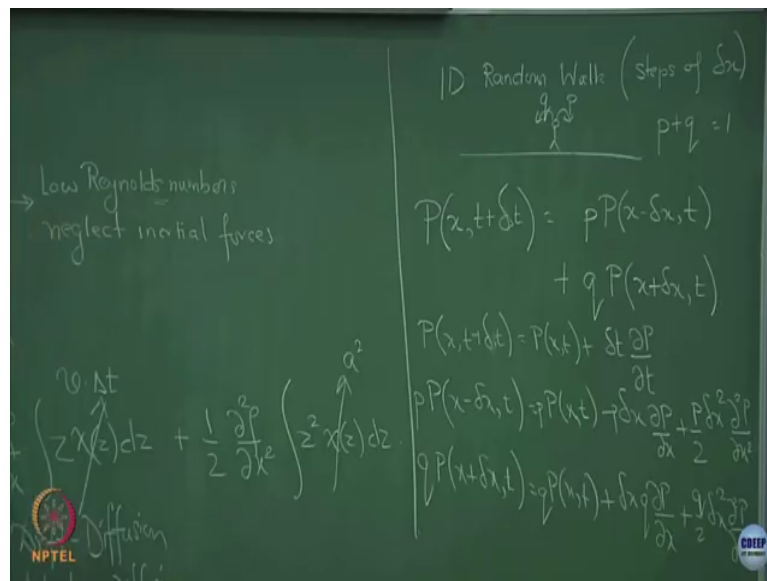 → Low Reynolds numbers
neglect inertial forces
v.Δt
a²
∫ z χ(z) dz + 1/2 ∂²P/∂x² ∫ z² χ(z) dz
Diffusion
1D Random Walk (steps of δx)
q p
p+q=1
P(x, t+δt) = pP(x-δx, t)
+ qP(x+δx, t)
P(x, t+δt) = P(x,t) + δt ∂P/∂t
pP(x-δx, t) = pP(x,t) - pδx ∂P/∂x + p/2 δx² ∂²P/∂x²
qP(x+δx, t) = qP(x,t) + δx q ∂P/∂x + q/2 δx² ∂²P/∂
NPTEL
CDEEP
IIT BOMBAY